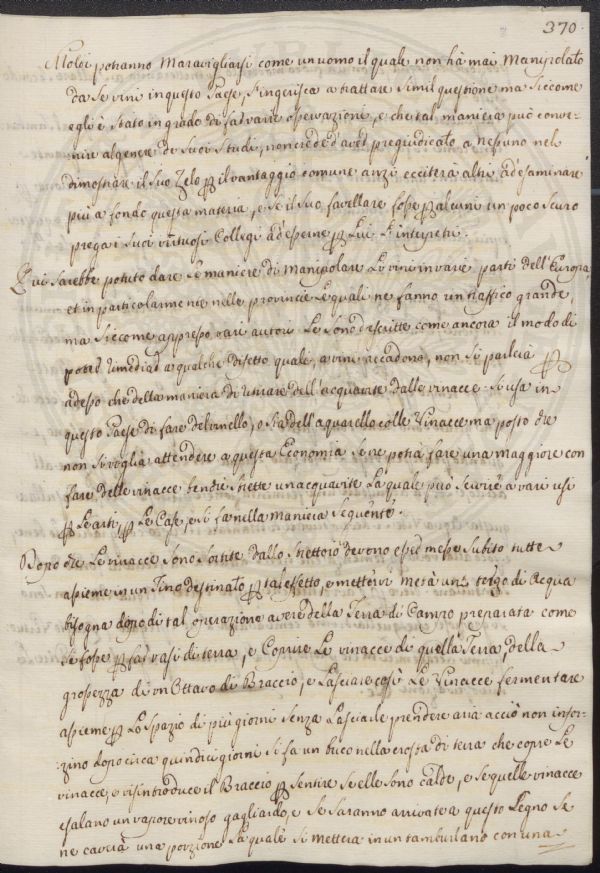 370.
Molti potranno Maravigliarsi come un uomo il quale non hà mai Manipolato
da se vini in questo Paese, s'ingerisca a trattare simil questione ma siccome
egli è stato in grado di far varie osservazioni, e che tal maniera può conve-
nire al genere de suoi studi, non crede d'aver pregiudicato a nessuno nel
dimostrare il suo Zelo p il vantaggio comune anzi ecciterà altri ad esaminare
più a fondo questa materia, e se il suo favellare fosse p alcuni un poco scuro
prega i suoi virtuosi Collegi ad esserne p Lui l'interpetri.
Qui sarebbe potuto dare le maniere di manipolare Le vini in varie parti dell'Europa,
et in particolarmente nelle provincie Le quali ne fanno un traffico grande,
ma siccome appresso vari autori Le sono descritte come ancora il modo di
poter rimediar a qualche difetto quale a vini accadono, non si parlerà p
adesso che della maniera di tirare dell'acquavite dalle vinacce. si usa in
questo Paese di fare del vinello, o sia dell'aquarello colle Vinacce ma posto che
non si voglia attendere a questa Economia se ne potrà fare una maggiore con
fare delle vinacce benche strette un acquavite La quale può servire a vari usi
p Le arti, p Le Case, e si fà nella maniera seguente.
Dopo che Le vinacce sono sortite dallo strettoio devono esser messe subito tutte
assieme in un Tino destinato p tal effetto, e mettervi metà un terzo di Acqua
bisogna dopo di tal operazione avere della Terra di Campo preparata come
se fosse p far vasi di terra, e Coprire Le vinacce di quella Terra, della
grossezza di un Ottavo di Braccio, e Lasciare così Le Vinacce fermentare
assieme p Lo spazio di più giorni senza Lasciarle prendere aria acciò non infor-
zino dopo circa quindici giorni si fà un buco nella crosta di terra che copre Le
vinacce, e vi s'introduce il Braccio p sentire se elle sono calde, e se quelle vinacce
esalano un vapore vinoso gagliardo, e se saranno arrivate a questo segno se
ne caverà una porzione La quale si metterà in un tamburlano con una